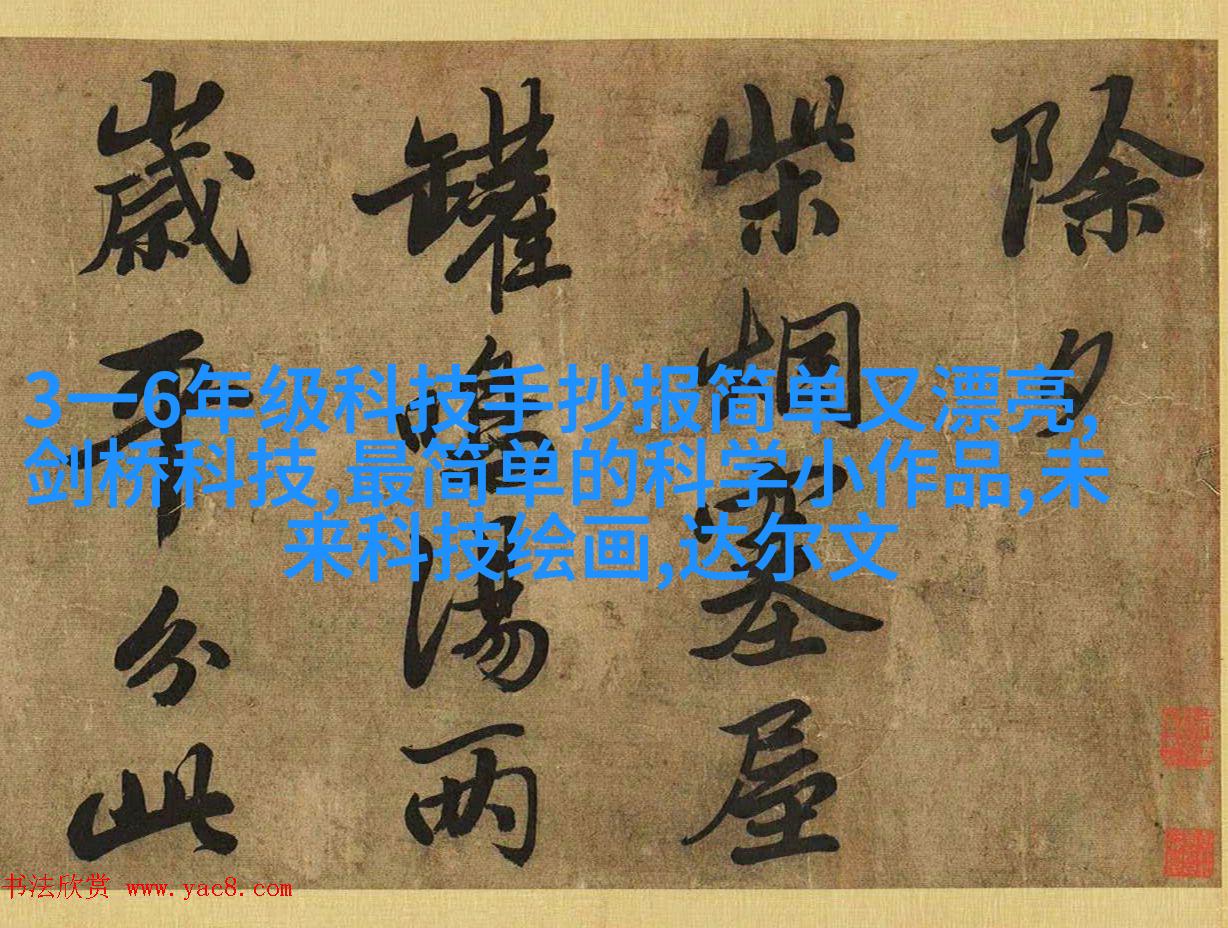 除夕
柴烟塞屋
罐鳴湯两
歲平分此
3一6年级科技手抄报简单又漂亮,
剑桥科技,最简单的科学小作品,未
来科技绘画,达尔文
书法欣赏 www.yac8.com